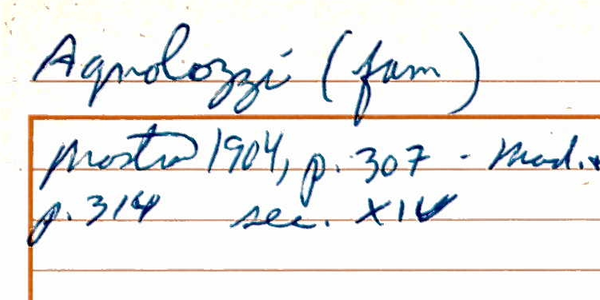 Agnolozzi (fam)
Mostra 1904, p. 307 - Mad.
p. 314 sec. XIV